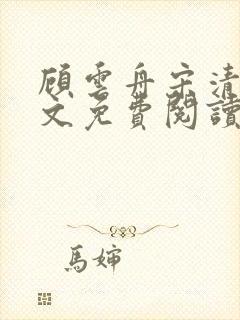 顧雲舟宋清
文免費閱讀
馬婶